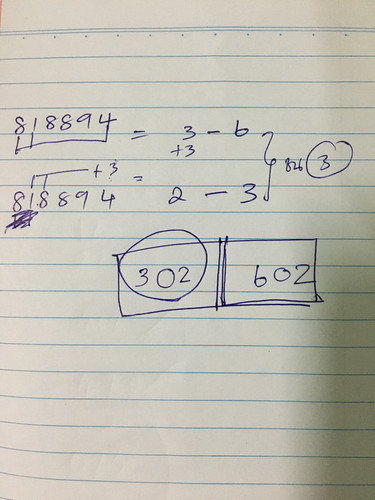 818894 = 3 - 6
+3
+3 =
818894 2 - 3
3
302 602